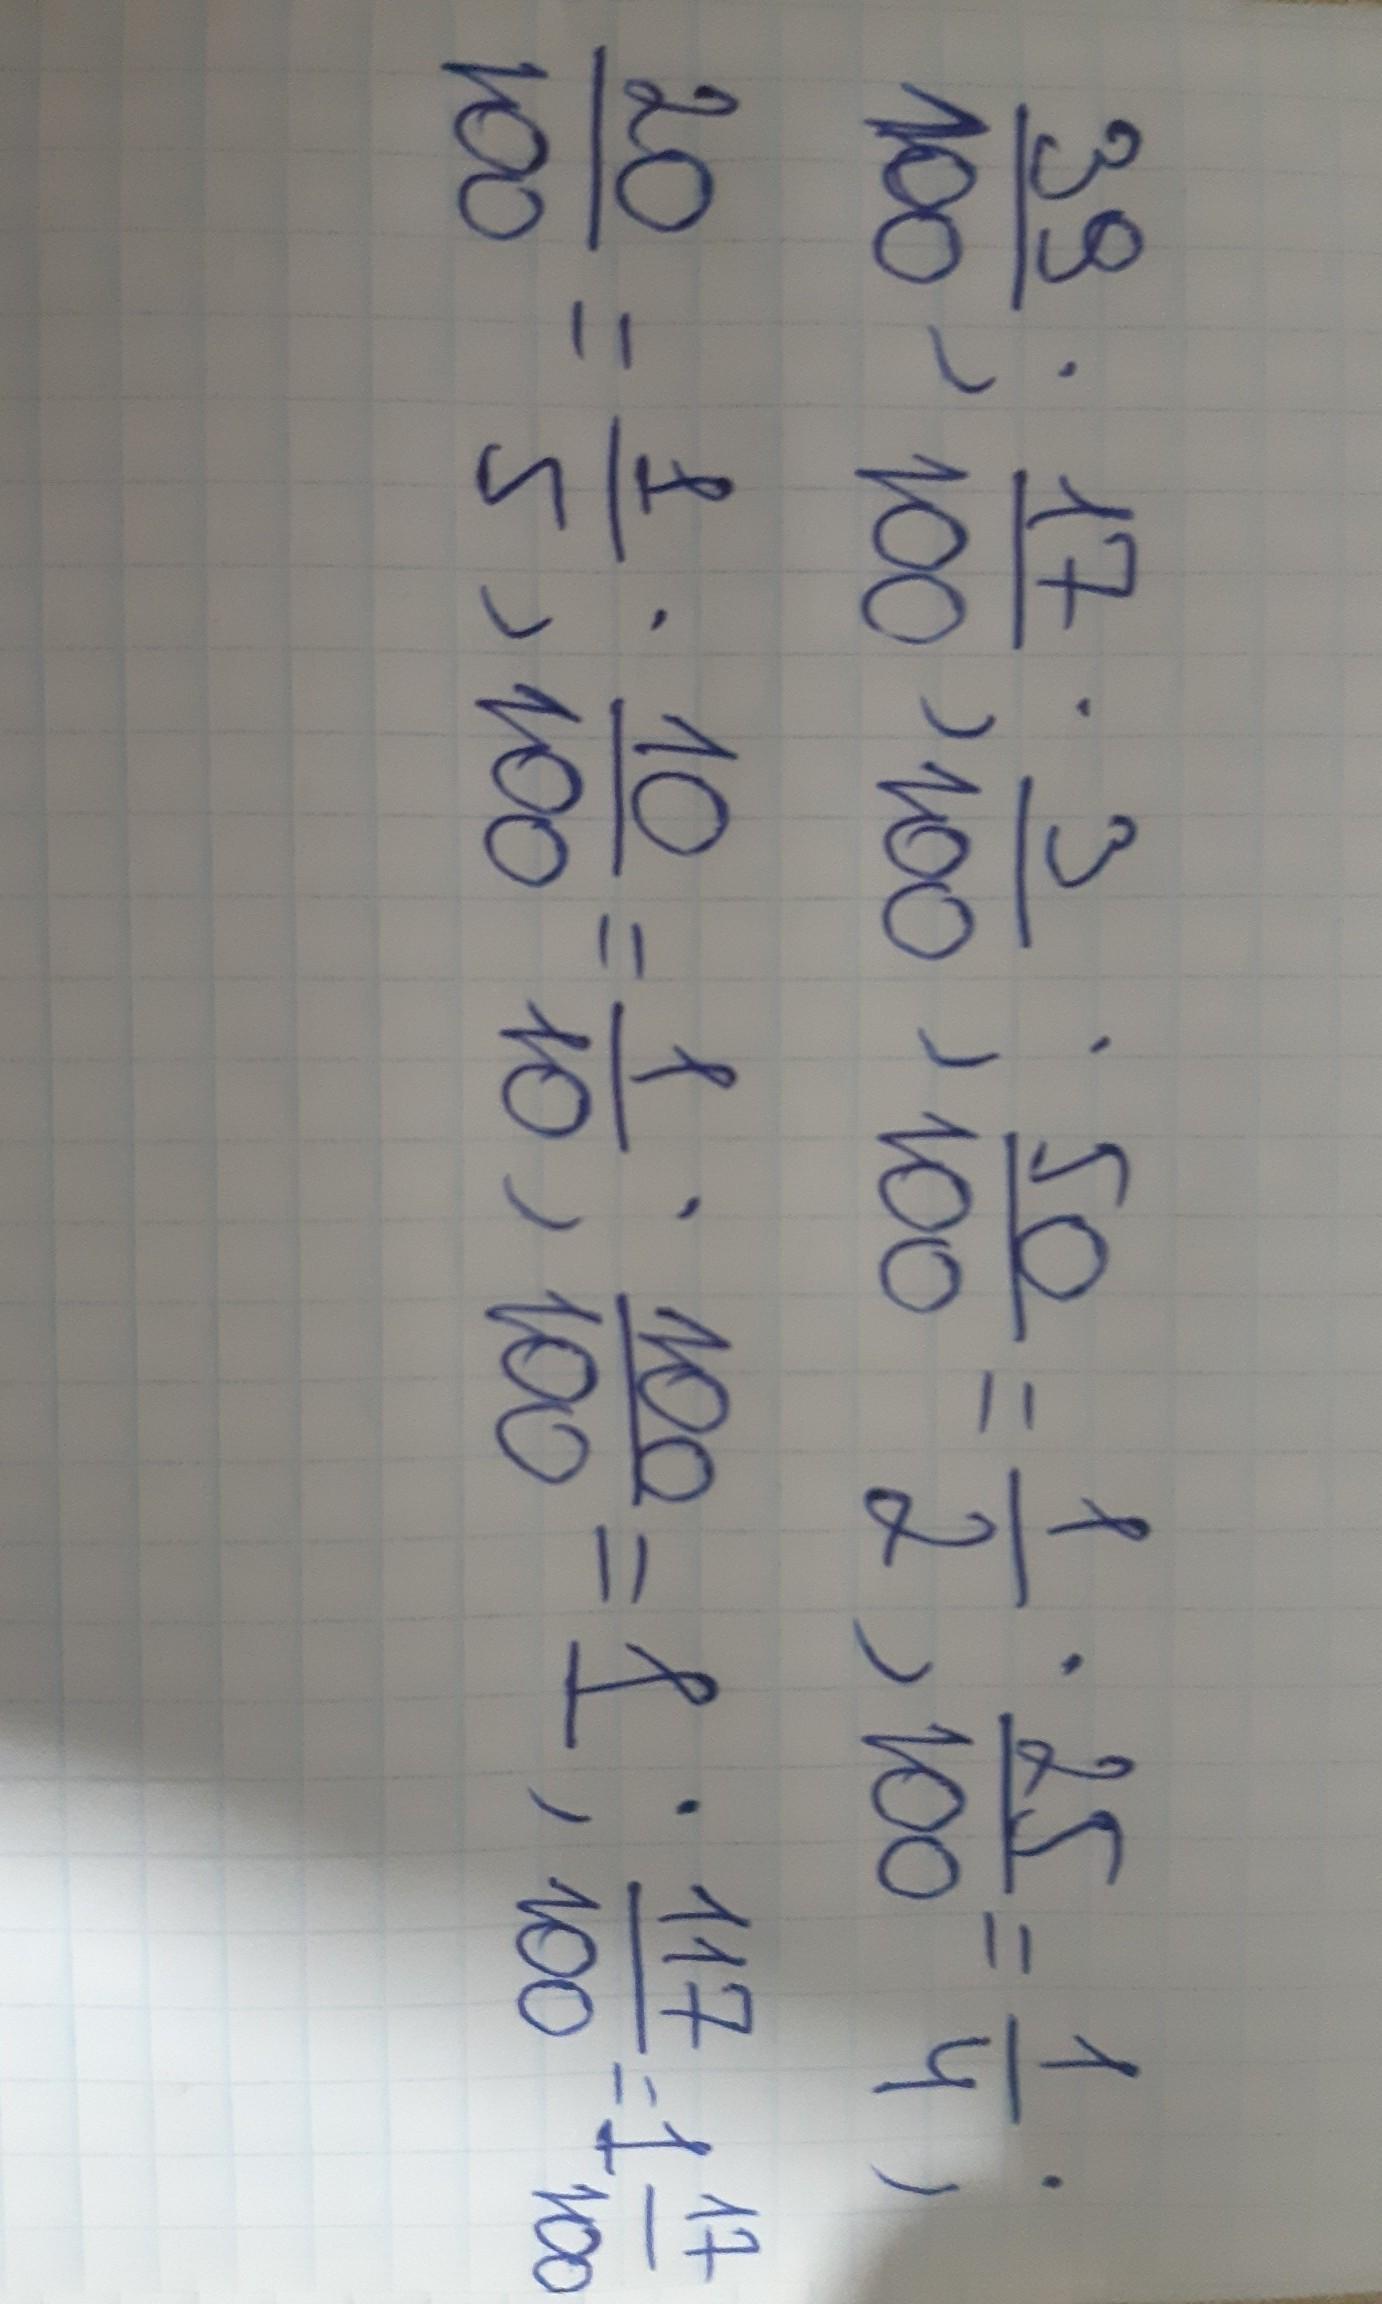 39/100 ; 17/100 ; 3/100 ; 50/100 = 1/2 ; 25/100 = 1/4 ;
20/100 = 1/5 ; 10/100 = 1/10 ; 100/100 = 1 ; 117/100 = 1 17/100